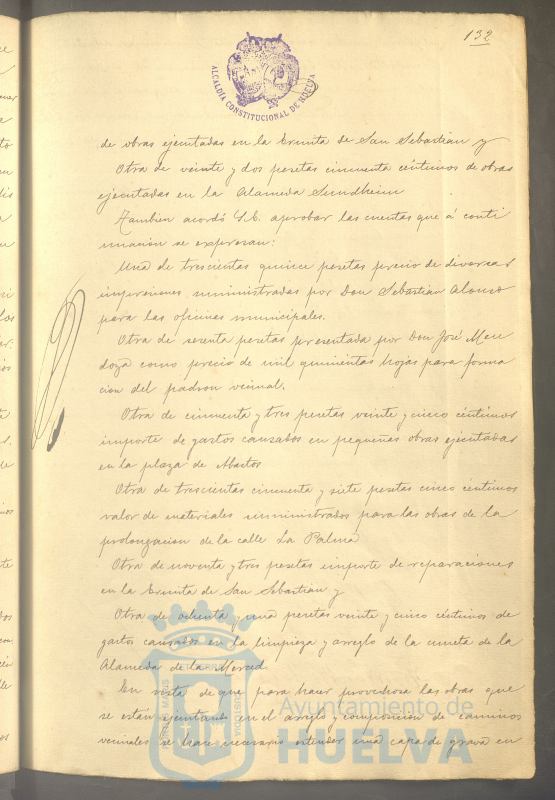 132
ALCALDIA CONSTITUCIONAL DE HUELVA
de obras ejecutadas en la Ermita de San Sebastian y
Otra de veinte y dos pesetas cincuenta céntimos de obras
ejecutadas en la Alameda Sundheim
Tambien acordó S.E. aprobar las cuentas que á conti
nuacion se expresan:
Una de trescientas quince pesetas precio de diversas
impresiones suministradas por Don Sebastian Alonso
para las oficinas municipales.
Otra de sesenta pesetas presentada por Don José Men
doza como precio de mil quinientas hojas para forma
cion del padron vecinal.
Otra de cincuenta y tres pesetas veinte y cinco céntimos
importe de gastos causados en pequeñas obras ejecutadas
en la plaza de Abastos
Otra de trescientas cincuenta y siete pesetas cinco céntimos
valor de materiales suministrados para las obras de la
prolongacion de la calle La Palma
Otra de noventa y tres pesetas importe de reparaciones
en la Ermita de San Sebastian y
Otra de ochenta y una pesetas veinte y cinco céntimos de
gastos causados en la limpieza y arreglo de la cuneta de la
Alameda de la Merced
En vista de que para hacer provechosa las obras que
se están ejecutando en el arreglo y composicion de caminos
vecinales se hace necesario estender una capa de grava en
Ayuntamiento de
HUELVA